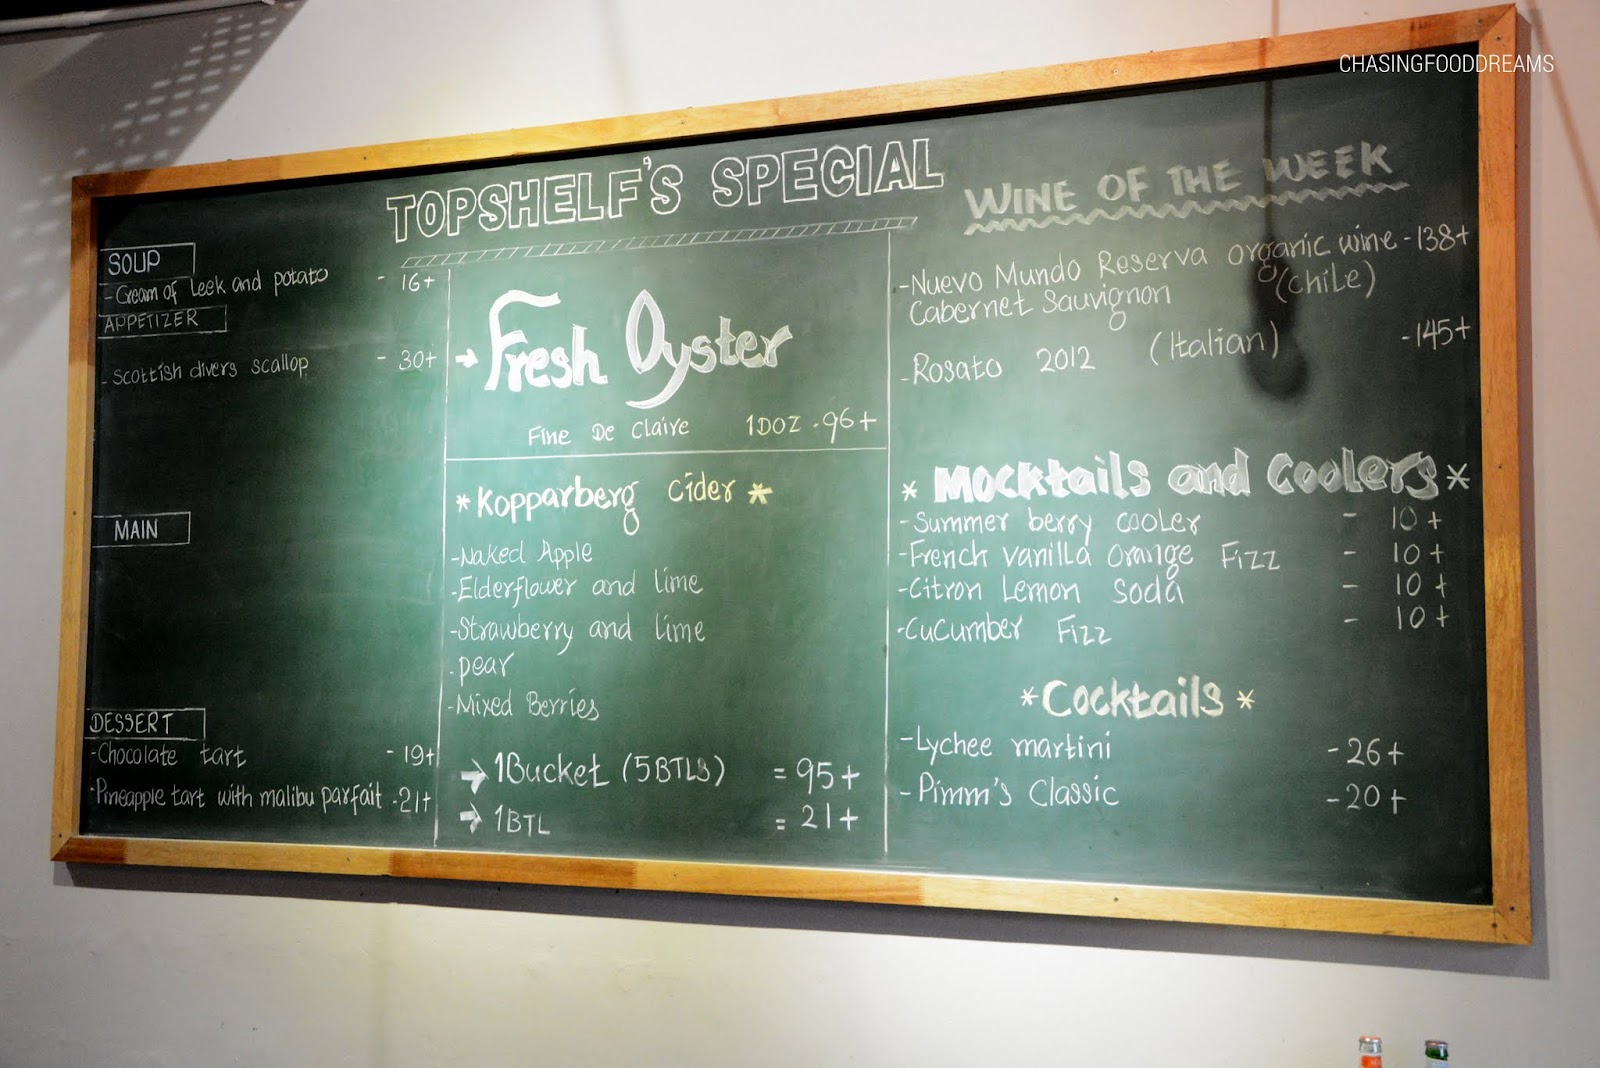 CHASINGFOODDREAMS
TOPSHELF'S SPECIAL
SOUP
- Cream of leek and potato - 16+
APPETIZER
- Scottish divers scallop - 30+
MAIN
DESSERT
- Chocolate tart - 19+
- Pineapple tart with malibu parfait - 21+
→ Fresh Oyster
Fine De Claire 1DOZ - 96+
* Kopparberg Cider *
- Naked Apple
- Elderflower and lime
- Strawberry and lime
- pear
- Mixed Berries
→ 1Bucket (5BTLS) = 95+
→ 1BTL = 21+
WINE OF THE WEEK
- Nuevo Mundo Reserva organic wine - 138+
Cabernet Sauvignon (Chile)
- Rosato 2012 (Italian) - 145+
* Mocktails and Coolers *
- Summer berry cooler - 10+
- French vanilla orange Fizz - 10+
- Citron Lemon Soda - 10+
- Cucumber Fizz - 10+
* Cocktails *
- Lychee martini - 26+
- Pimm's Classic - 20+